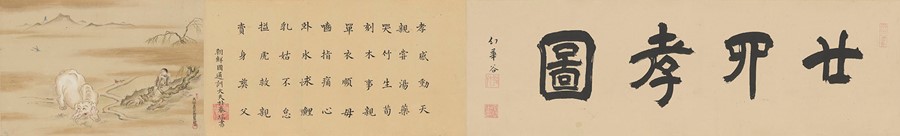 廿四孝圖
孝感動天
親嘗湯藥
哭竹生筍
刻木事親
單衣順母
嚙指痛心
卧冰求鯉
乳姑不怠
搤虎救親
賣身葬父
朝鮮國通訓大夫